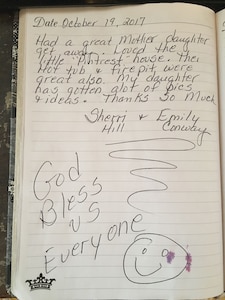 Date October 19, 2017
Had a great Mother daughter
get away. Loved the
little "Pintrest" house. The
Hot tub & firepit were
great also. My daughter
has gotten alot of pics
& ideas. Thanks So Much
Sherri & Emily
Hill Conway
God
Bless
US
Everyone